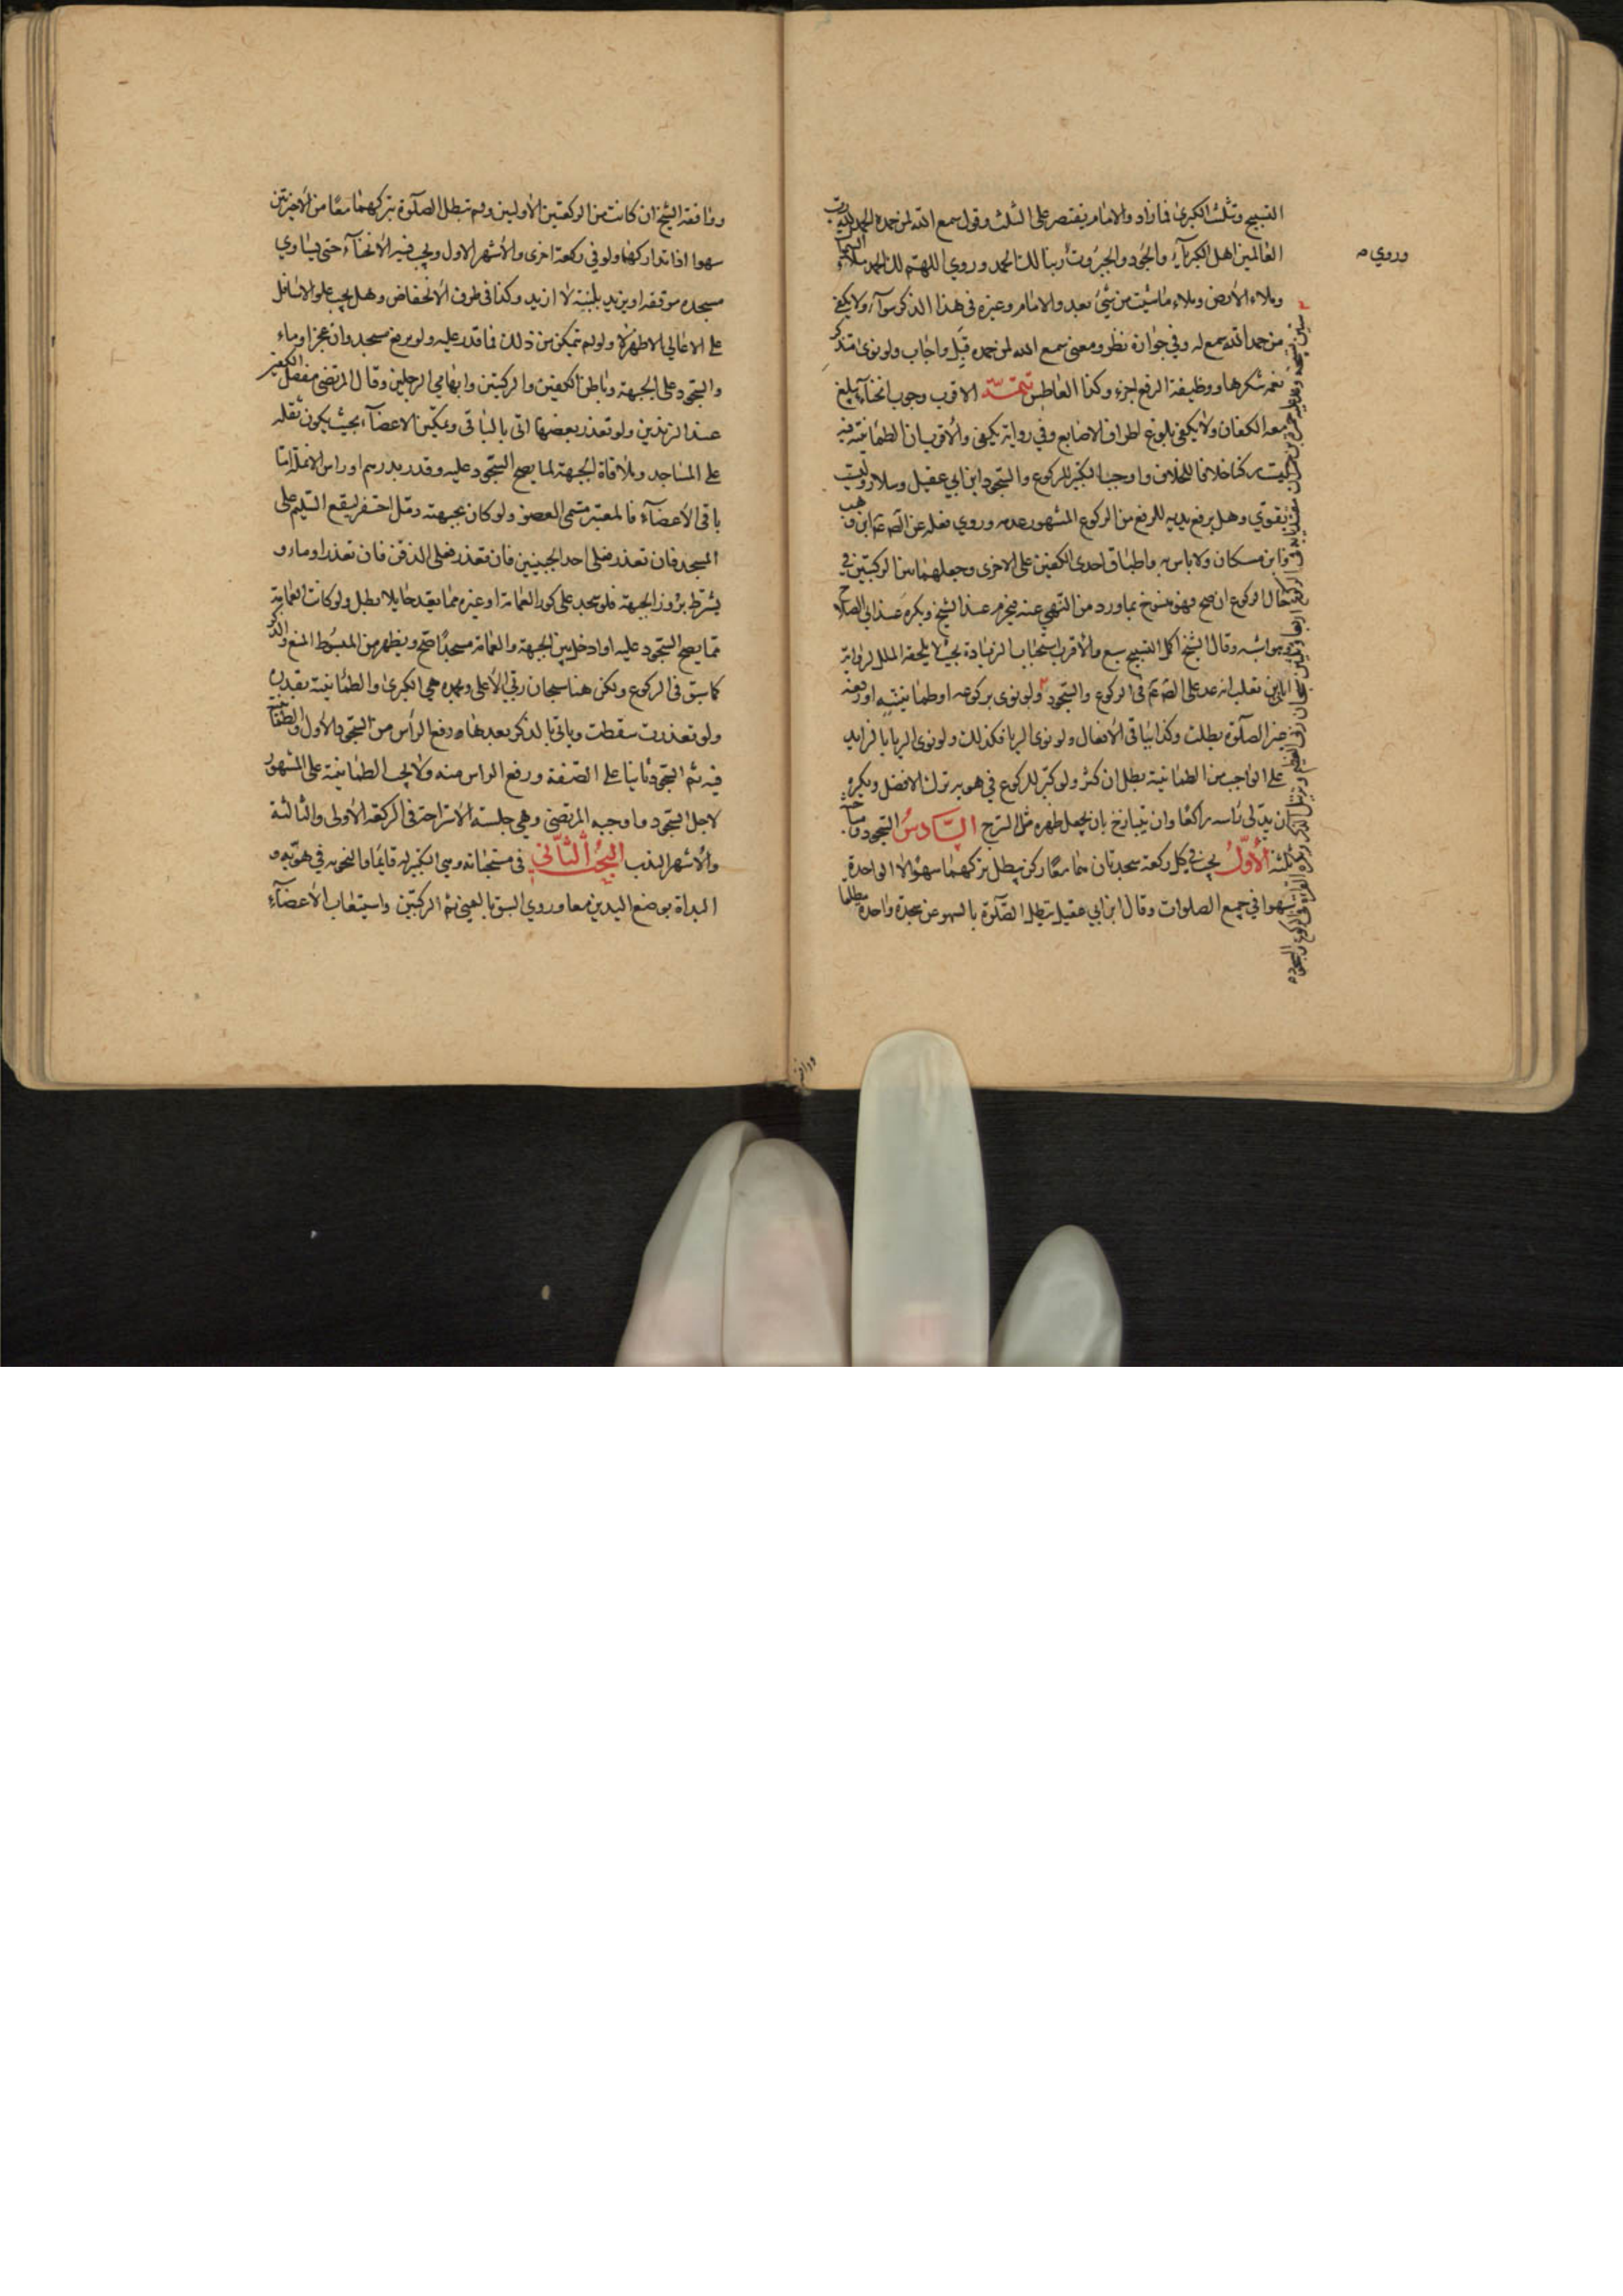 التسبيح وتثلث الكبرى فما زاد والامام يقتصر على الثلث وقول سمع الله لمن حمده الحمد لله رب
العالمين اهل الكبرياء والجود والجبروت ربنا لك الحمد وروي اللهم لك الحمد ملاء السماء
وملاء الارض وملاء ما شئت من شيئ بعد والامام وغيره في هذا الذكر سواء ولا يكفي
من حمد الله سمع له وفي جوازه نظر ومعنى سمع الله لمن حمده قبل واجاب ولو نوى
نعمه شكرها ووظيفة الرفع اجزء وكذا العاطس تتمة الاقرب وجوب انحناء يبلغ
معه الكفان ولا يكفي بلوغ اطراف الاصابع وفي رواية يكفي والاقرب ان الطمانينة فيه
ليست ركنا خلافا للخلاف واوجب التكبير للركوع والسجود ابن ابي عقيل وسلار وليست
بقوي وهل يرفع يديه للرفع من الركوع المشهور عدمه وروي فعله عن
وابن مسكان ولا باس به واطباق احدى الكفين على الاخرى وجعلهما بين الركبتين في
حال الركوع ان صح فهو منسوخ بما ورد من النهي عنه فيحرم عند الشيخ ويكره عند ابي الصلاح
وهو اشبه وقال الشيخ اكمل التسبيح سبع والاقرب استحباب الزيادة بحيث لا يلحقه الملل لرواية
ابان بن تغلب انه عد على الصادق في الركوع والسجود ولو نوى بركوعه او طمانينته او رفعه
غير الصلوة بطلت وكذا باقي الافعال ولو نوى الريا فكذلك ولو نوى الريا بالزايد
على الواجب من الطمانينة بطل ان كثر ولو كبر للركوع في هويه ترك الافضل ويكره
ان يدلي راسه راكعا وان يتبازخ بان يجعل ظهره مثل السرج السادس السجود ومباحثه
ثلثة الاول يجب في كل ركعة سجدتان هما معا ركن يبطل تركهما سهوا لا الواحدة
سهوا في جميع الصلوات وقال ابن ابي عقيل تبطل الصلوة بالسهو عن سجدة واحدة مطلقا
وروي
ووافقه الشيخ ان كانت من الركعتين الاوليين ولم تبطل الصلوة بتركهما معا من الاخيرتين
سهوا اذا تداركها ولو في ركعة اخرى والاشهر الاول ويجب فيه الانحناء حتى يساوي
مسجده موقفه او يزيد بلبنة لا ازيد وكذا في طرف الانخفاض وهل يجب علو الاسافل
على الاعالي الاظهر لا ولو لم يتمكن من ذلك فما قدر عليه ولو برفع مسجد وان عجز اوماء
والسجود على الجبهة وباطن الكفين والركبتين وابهامي الرجلين وقال المرتضى مفصل الكفين
عند الزندين ولو تعذر بعضها اتى بالباقي وتمكين الاعضاء بحيث يكون ثقله
على المساجد وملاقاة الجبهة لما يصح السجود عليه وقدر بدرهم او راس الانملة اما
باقي الاعضاء فالمعتبر مسمى العضو ولو كان بجبهته دمل احتفر ليقع السليم على
المسجد فان تعذر فعلى احد الجبينين فان تعذر فعلى الذقن فان تعذر اوما و
يشترط بروز الجبهة فلو سجد على كور العمامة او غيره مما يعد حايلا بطل ولو كانت العمامة
مما يصح السجود عليه او ادخل بين الجبهة والعمامة مسجدا صح ويظهر من المبسوط المنع والذكر
كما سبق في الركوع ولكن هنا سبحان ربي الاعلى وبحمده هي الكبرى والطمانينة بقدره
ولو تعذرت سقطت وياتي بالذكر بعدها ورفع الراس من السجود الاول والطمانينة
فيه ثم السجود ثانيا على الصفة ورفع الراس منه ولا يجب الطمانينة على المشهور
لاجل السجود واوجبه المرتضى وهي جلسة الاستراحة في الركعة الاولى والثالثة
والاشهر الندب البحث الثاني في مستحباته وهي التكبير له قايما والتخويه في هويه و
البداة بوضع اليدين معا وروي السبق باليمنى ثم الركبتين واستيعاب الاعضاء